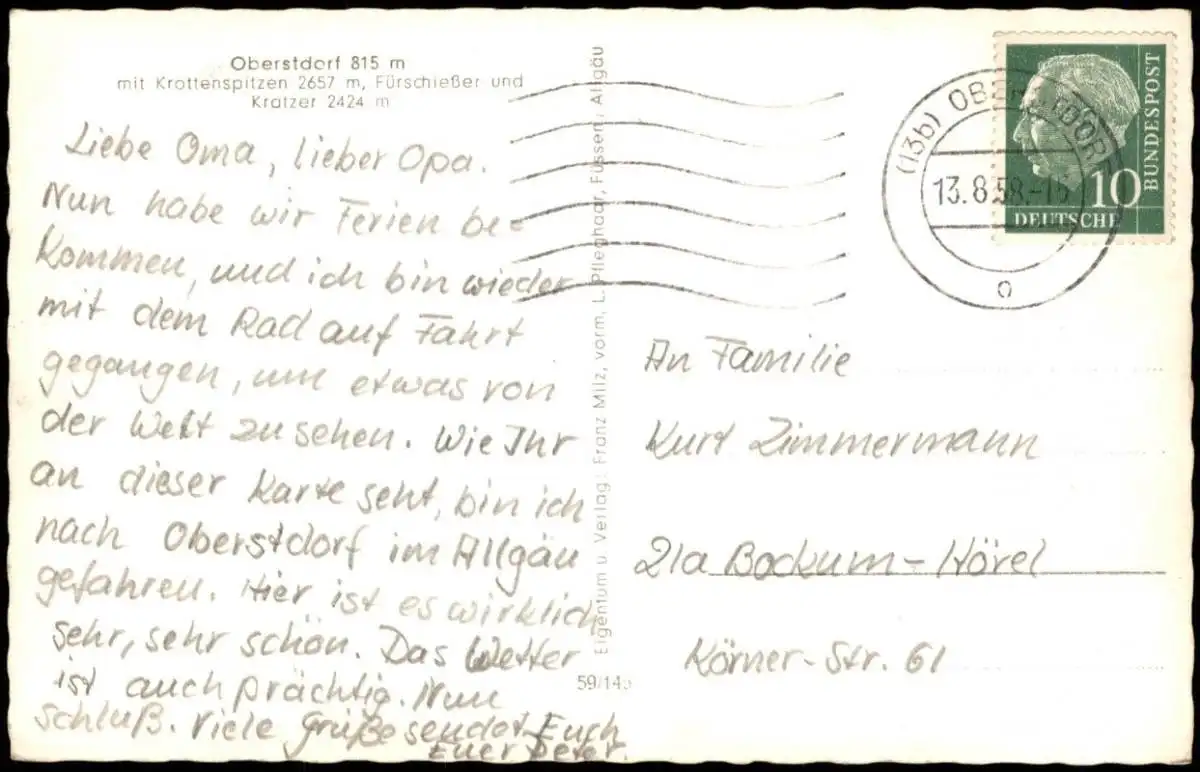 Oberstdorf 815 m
mit Krottenspitzen 2657 m, Fürschießer und
Kratzer 2424 m
Liebe Oma, lieber Opa.
Nun habe wir Ferien be-
kommen, und ich bin wieder
mit dem Rad auf Fahrt
gegangen, um etwas von
der Welt zu sehen. Wie Ihr
an dieser Karte seht, bin ich
nach Oberstdorf im Allgäu
gefahren. Hier ist es wirklich
sehr, sehr schön. Das Wetter
ist auch prächtig. Nun
schluß. Viele Grüße sendet Euch
Euer Peter.
Eigentum u. Verlag: Franz Milz, vorm. L. Pfleghaar, Füssen, Allgäu
59/145
(13b) OBERSTDORF
13.8.58.-15
o
10
DEUTSCHE
BUNDESPOST
An Familie
Kurt Zimmermann
21a Bockum-Hövel
Körner-Str. 61